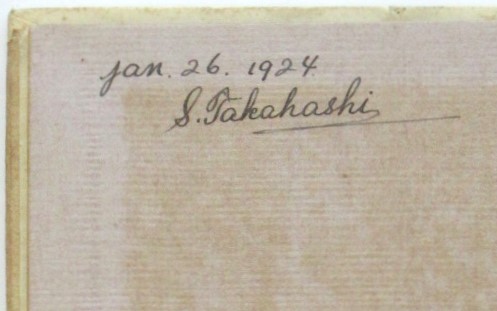 Jan. 26. 1924
S. Takahashi